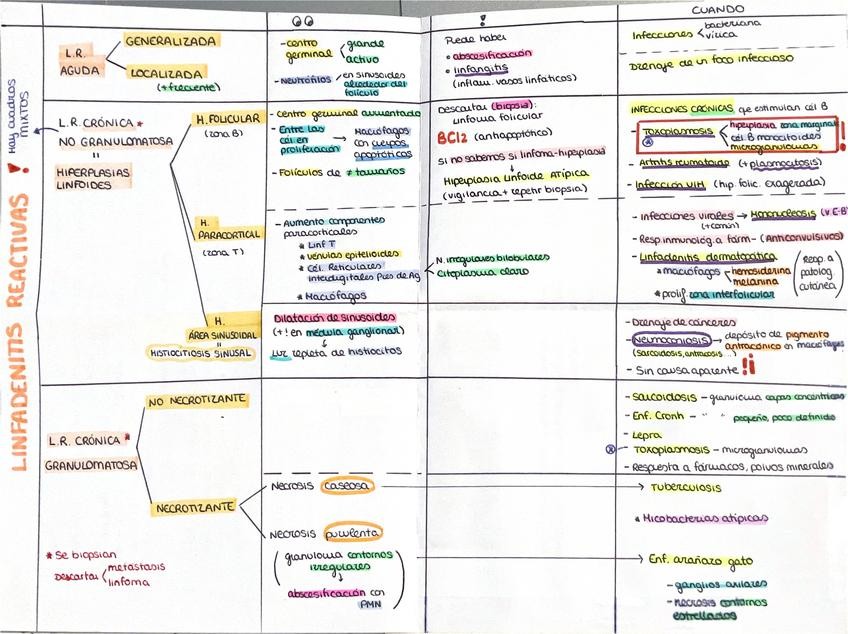 LINFADENITIS REACTIVAS
! Hay cuadros
mixtos
CUANDO
L.R.
AGUDA
GENERALIZADA
LOCALIZADA
(+ frecuente)
- centro
germinal
grande
activo
- Neutrófilos
en sinusoides
alrededor del
folículo
!
Puede haber
• abscesificación
• linfangitis
(inflam. vasos linfáticos)
Infecciones
bacteriana
vírica
Drenaje de un foco infeccioso
L.R. CRÓNICA *
NO GRANULOMATOSA
"
HIPERPLASIAS
LINFOIDES
H. FOLICULAR
(zona B)
- Centro germinal aumentado
- Entre las
cél en
proliferación
→ Macrófagos
con cuerpos
apoptóticos
- Folículos de ≠ tamaños
Descartar (biopsia):
linfoma folicular
BCl2 (antiapoptótico)
si no sabemos si linfoma-hiperplasia
↓
Hiperplasia Linfoide Atípica
(vigilancia + repetir biopsia)
INFECCIONES CRÓNICAS que estimulan cél B
- Toxoplasmosis
hiperplasia zona marginal
cél B monocitoides
microgranulomas
!
- Artritis reumatoide (+ plasmocitosis)
- Infección VIH (hip. folic. exagerada)
H.
PARACORTICAL
(zona T)
- Aumento componentes
paracorticales
* Linf T
* vénulas epitelioides
* Cél. Reticulares
interdigitales Pres de Ag
* Macrófagos
N. irregulares bilobulares
Citoplasma claro
- Infecciones virales → Mononucleosis (V E-B)
(+ común)
- Resp. inmunológ. a fárm - (Anticonvulsivos)
- Linfadenitis dermatopática
* macrófagos
hemosiderina
melanina
* prolif. zona interfolicular
(Resp. a
patolog
cutánea)
H.
ÁREA SINUSOIDAL
"
HISTIOCITIOSIS SINUSAL
Dilatación de sinusoides
(+! en médula ganglionar)
↓
Luz repleta de histiocitos
- Drenaje de cánceres
- Neumoconiosis → depósito de pigmento
antracónico en macrófagos
(sarcoidosis, antracosis...)
- Sin causa aparente !¡
L.R. CRÓNICA *
GRANULOMATOSA
NO NECROTIZANTE
- Sarcoidosis - granuloma capas concéntricas
- Enf. Cronh - " " pequeño, poco definido
- Lepra
- Toxoplasmosis - microgranulomas
- Respuesta a fármacos, polvos minerales
NECROTIZANTE
Necrosis caseosa
→ Tuberculosis
* Micobacterias atípicas
Necrosis purulenta
(granuloma contornos
irregulares
↓
abscesificación con
PMN)
→ Enf. arañazo gato
- ganglios axilares
- necrosis contornos
estrellados
* Se biopsian
Descartar
metástasis
linfoma